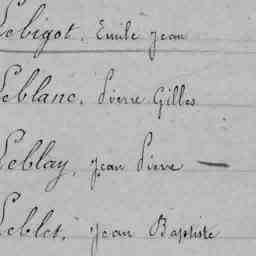 Lebigot, Emile Jean
Leblanc, Pierre Gilles
Leblay, Jean Pierre —
Leblet, Jean Baptiste